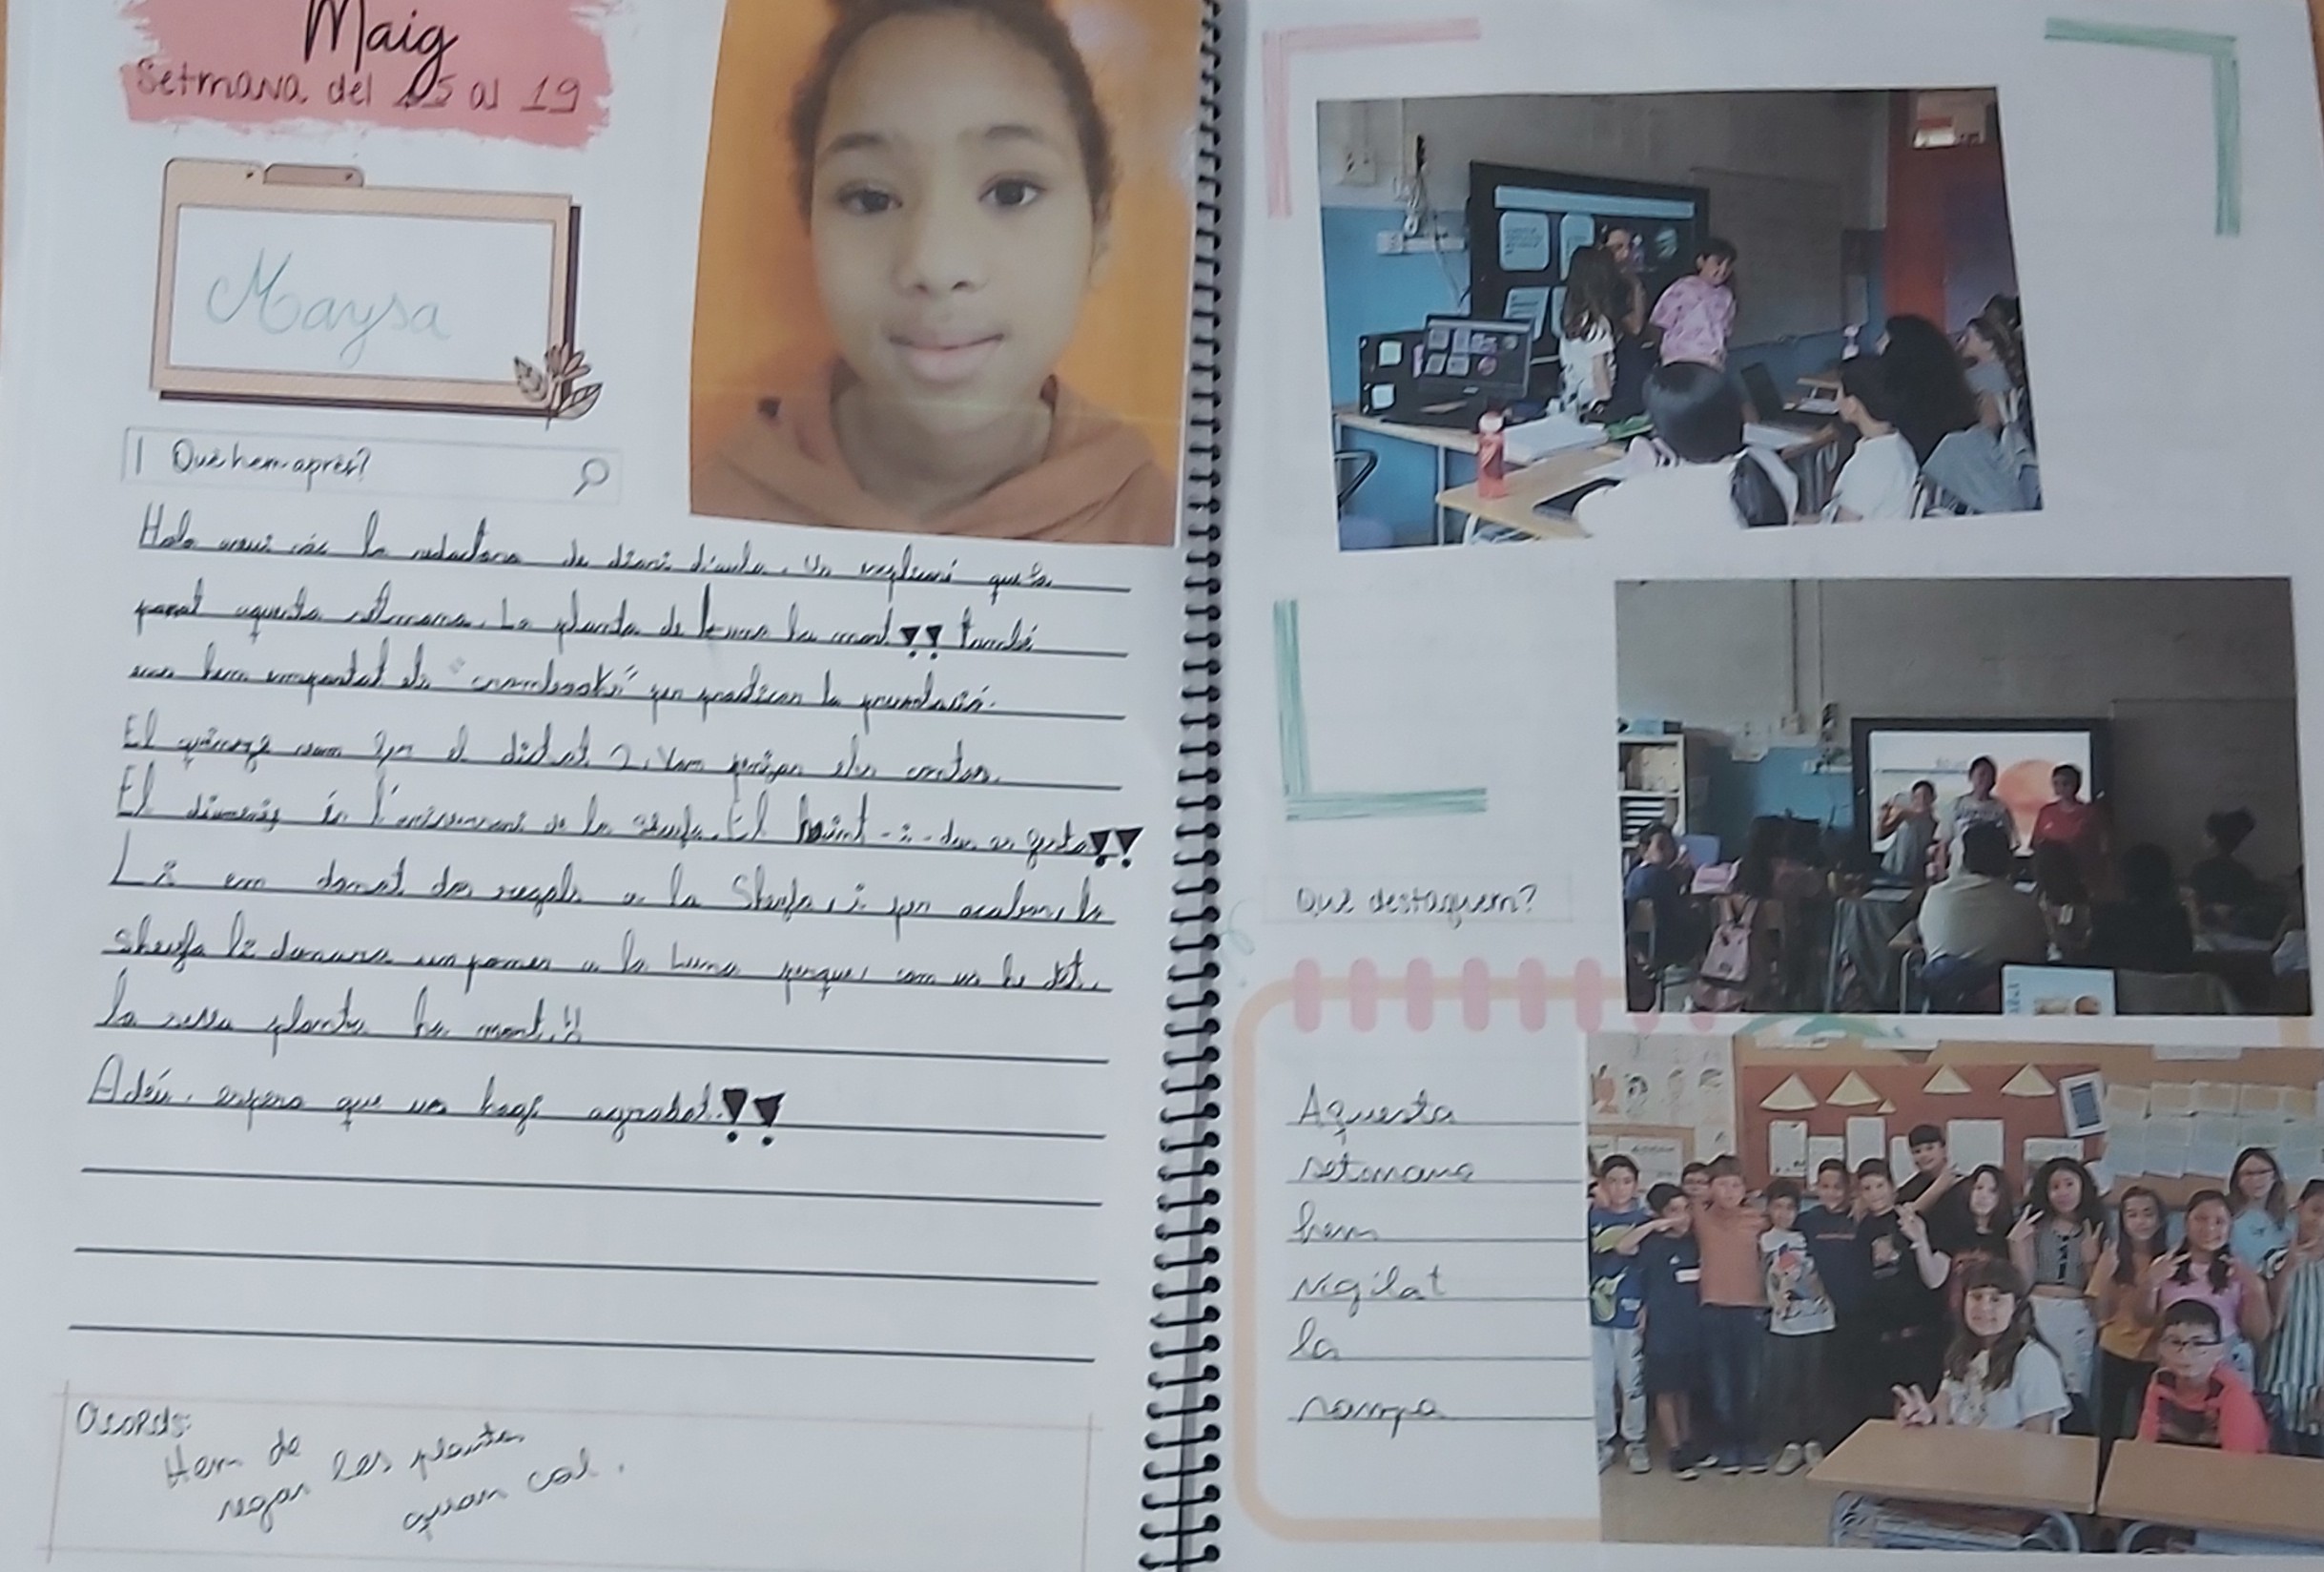 Maig
Setmana del 15 al 19
Maysa
Què hem après?
Hola avui sóc la redactora de diari d'aula. Us explicaré què ha
passat aquesta setmana. La planta de Luna ha mort!! també
ens hem emportat els "crombooks" per practicar la presentació.
El quinze vam fer el dictat 2. Vam penjar els contes.
El dimecres és l'aniversari de la Sheyla. El vint-i-dos es festa!!
Li em donat dos regals a la Sheyla, i per acabar, la
Sheyla li demana un poma a la Luna perquè, com us he dit,
la seva planta ha mort.!!
Adéu, espero que us hagi agradat.!!
Acords:
Hem de
regar les plantes
quan cal.
Què destaquem?
Aquesta
setmana
hem
vigilat
la
rampa